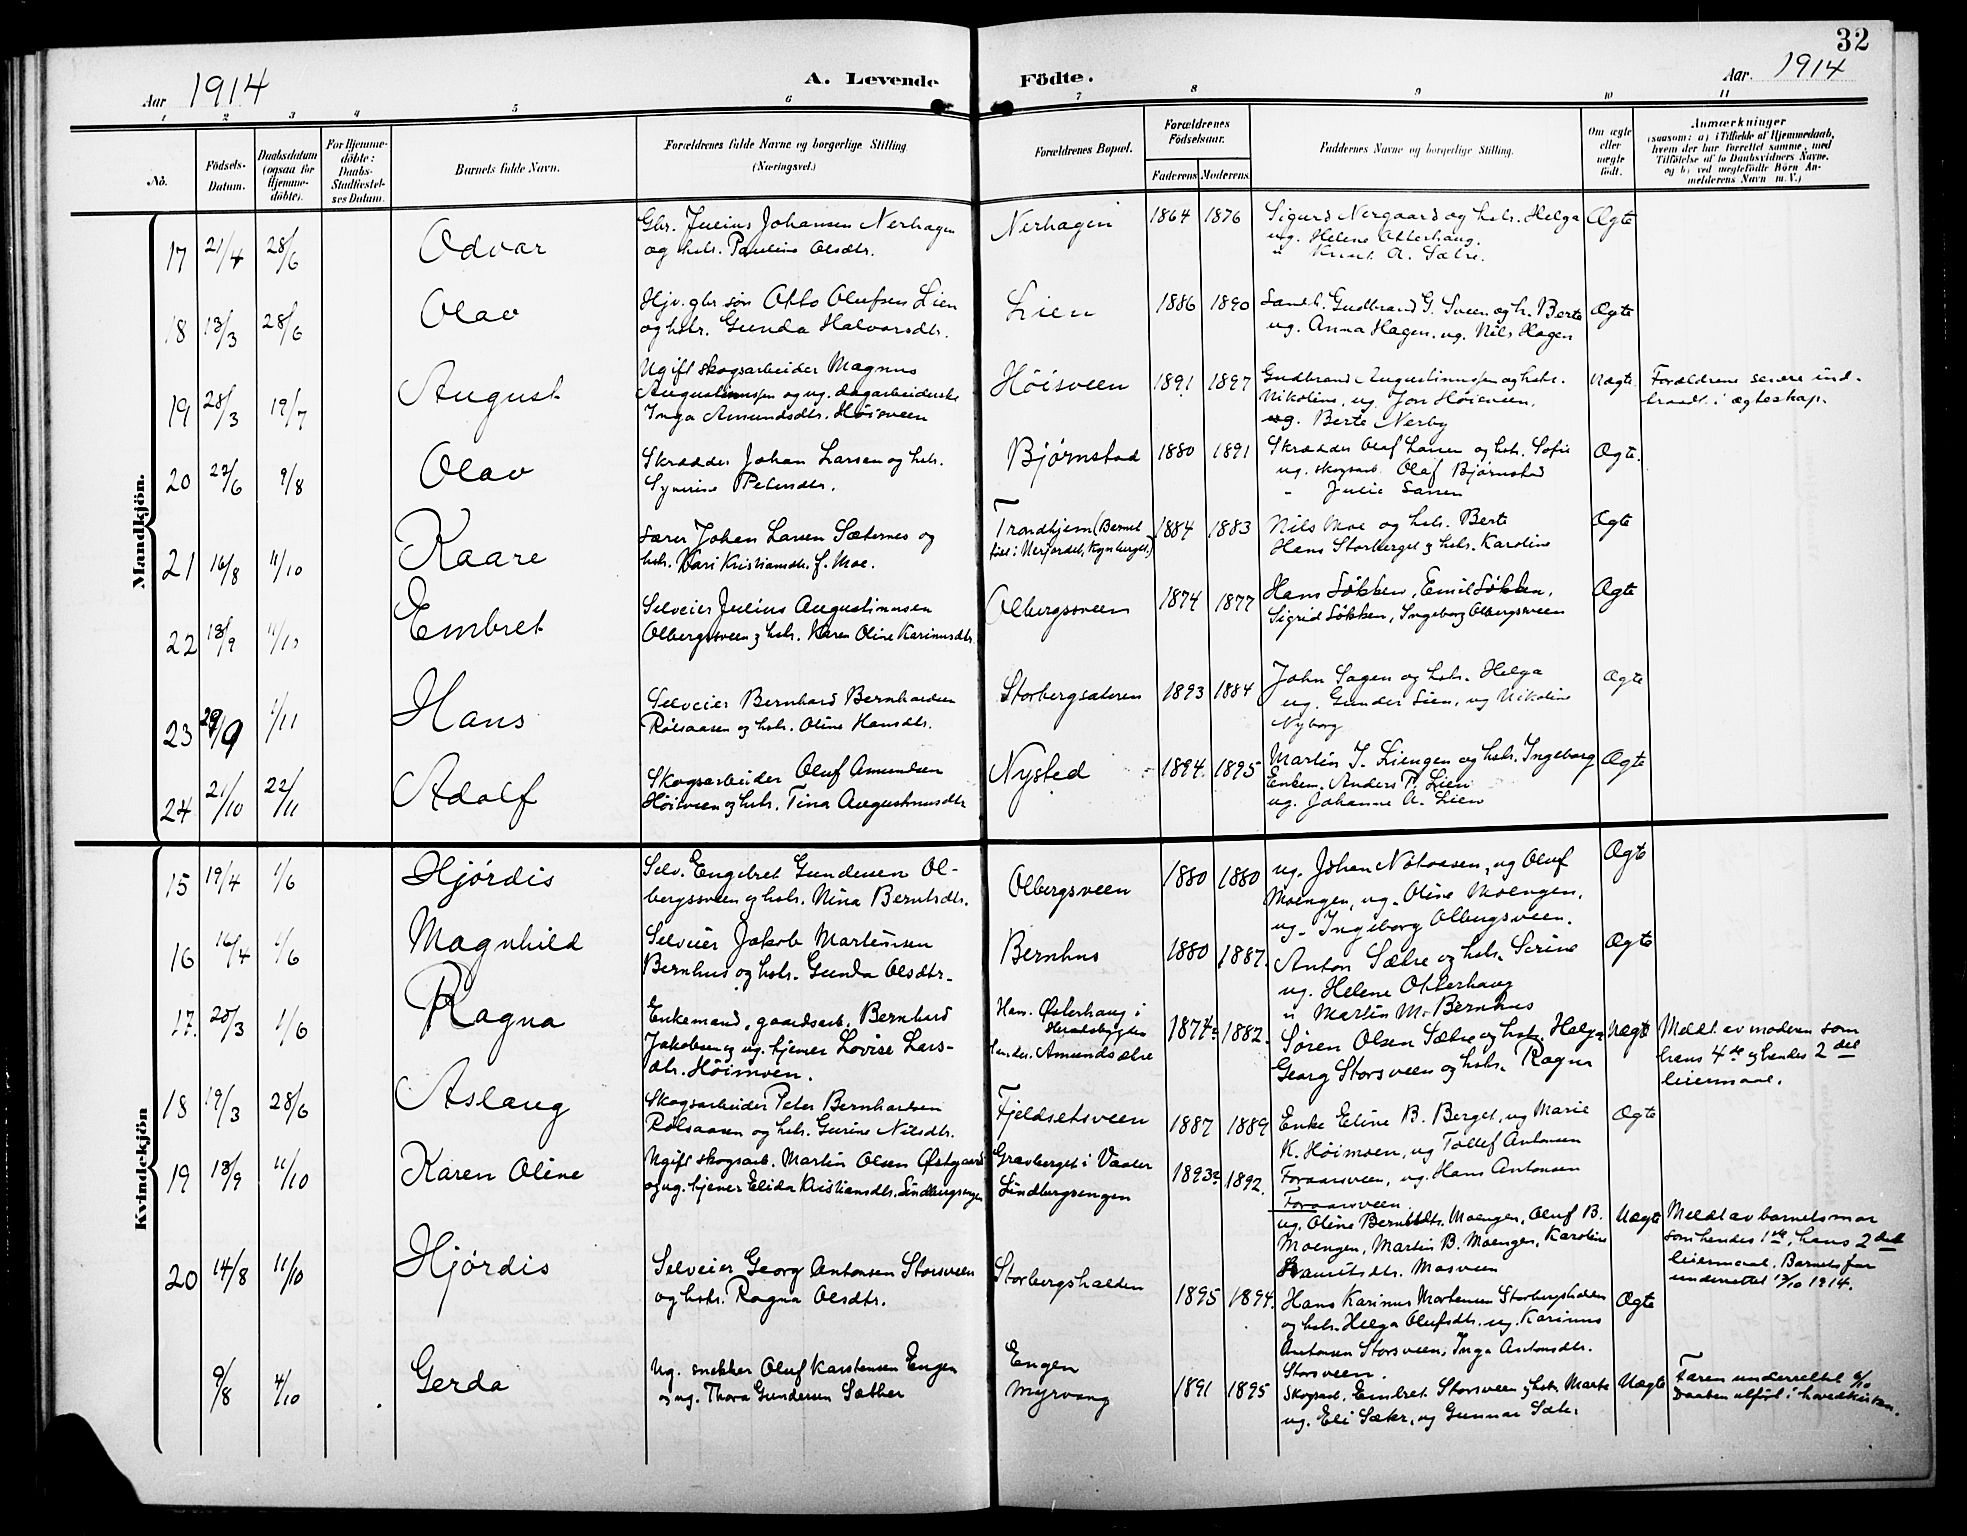 32
Aar 1914
A. Levende Födte.
Aar. 1914
1 2 3 4 5 6 7 8 9 10 11
No.
Födsels-
Datum.
Daabsdatum
(ogsaa for
Hjemme-
döbte).
For Hjemme-
döbte:
Daabs-
Stadfæstel-
ses Datum.
Barnets fulde Navn.
Forældrenes fulde Navne og borgerlige Stilling
(Næringsvei.)
Forældrenes Bopæl.
Forældrenes
Födselsaar.
Faderens Moderens
Faddernes Navne og borgerlige Stilling.
Om ægte
eller
uægte
födt.
Anmærkninger
(saasom: a) i Tilfælde af Hjemmedaab,
hvem der har forrettet samme, med
Tilföielse af to Daabsvidners Navne,
og b) ved uægtefödte Börn An-
melderens Navn m. V.)
Mandkjön.
17 21/4 28/6 Odvar
Gbr. Julius Johansen Nerhagen
og hstr. Pauline Olsdtr.
Nerhagen 1864 1876
Sigurd Nergaard og hstr. Helga
ug. Helene Otterhaug.
" Knut A. Sætre.
Ægte
18 13/3 28/6 Olav
Hjv. gbr søn Otto Olufsen Lien
og hstr. Gunda Halvorsdtr.
Lien 1886 1890
Gudbrand G. Sveen og h. Berte
ug. Anna Hagen, ug. Nils Hagen
Ægte
19 28/3 19/7 August
Ugift skogsarbeider Magnus
Augustinussen og ug. dagarbeiderske
Inga Amundsdtr. Höisveen
Höisveen 1891 1897
Gudbrand Augustinussen og hstr.
Nikoline, ug. Jon Höisveen,
ug. Berte Nerby
Uægte.
Forældrene senere ind-
traadt i ægteskap.
20 22/6 9/8 Olav
Skrædder Johan Larsen og hstr.
Synnine Petersdtr.
Bjørnstad 1880 1891
Skrædder Olaf Larsen og hstr. Sofie
ug. skogsarb. Olaf Bjørnstad
" Julie Larsen
Ægte.
21 16/8 11/10 Kaare
Lærer Johan Larsen Sæternes og
hstr. Kari Kristiansdtr. f. Moe.
Trondhjem (Barnet
født i Nerjordet, Kynberget.)
1884 1883
Nils Moe og hstr. Berte
Hans Storberget & hstr. Karoline
Ægte
22 13/9 11/10 Embret
Selveier Julius Augustinussen
Olbergsveen & hstr. Karen Oline Karinusdtr.
Olbergsveen 1874 1877
Hans Løkken, Emil Løkken,
Sigrid Løkken, Ingeborg Olbergsveen
Ægte
23 29/9 1/11 Hans
Selveier Bernhard Bernhardsen
Rølsaasen og hstr. Oline Hansdtr.
Storbergsæteren 1893 1884
John Sagen og hstr. Helga
ug. Gunder Lien, ug Nikoline
Nyborg
Ægte
24 21/10 22/11 Adolf
Skogsarbeider Oluf Amundsen
Höisveen og hstr. Tina Augustinusdtr.
Nysted 1894. 1895
Martin J. Liengen og hstr. Ingeborg
Enkem. Anders P. Lien
ug. Johanne A. Lien
Ægte
Kvindekjön
15 19/4 1/6 Hjördis
Selv. Engebret Gundersen Ol-
bergsveen og hstr. Nina Berntsdtr.
Olbergsveen 1880 1880
ug. Johan Notaasen, ug Oluf
Moengen, ug. Oline Moengen,
ug. Ingeborg Olbergsveen.
Ægte
16 16/4 1/6 Magnhild
Selveier Jakob Martinsen
Bernhus og hstr. Gunda Olsdtr.
Bernhus 1880 1887.
Anton Sætre og hstr. Serine
ug. Helene Otterhaug
" Martin M. Bernhus
Ægte
17. 28/3 1/6 Ragna
Enkemand, gaardsarb. Bernhard
Jakobsen og ug. tjener Lovise Lars-
dtr. Höimoen.
Han. Østerhaug i
Heradsbygden
Hendes. Amundsætre
1874. 1882.
Søren Olsen Sætre og hstr. Helga
Georg Storsveen og hstr. Ragna
Uægte
Meldt av moderen som
hans 4de og hendes 2det
leiermaal.
18 19/3 28/6 Aslaug
Skogsarbeider Peter Bernhardsen
Rølsaasen og hstr. Gurine Nilsdtr.
Fjeldsetsveen 1887 1889
Enke Eline B. Berget, ug Marie
K. Höimoen, ug Tollef Antonsen
Foraarsveen, ug. Hans Antonsen
Foraarsveen
Ægte
19 13/9 11/10 Karen Oline
Ugift skogsarb. Martin Olsen Østgaard
og ug. tjener Elida Kristiansdtr. Lindbergsengen
Gravberget i Vaaler
Lindbergsengen
1893. 1892.
ug. Oline Berntsdtr. Moengen, Oluf B.
Moengen, Martin B. Moengen, Karoline
Masveen
Uægte
Meldt av barnets mor
som hendes 1ste, hans 2det
leiermaal. Barnets far
underrettet 12/10 1914.
20 14/8 11/10 Hjördis
Selveier Georg Antonsen Storsveen
og hstr. Ragna Olsdtr.
Storbergshalden 1895 1894.
Hans Karinus Mortensen Storbergshalden
og hstr. Helga Olufsdtr. ug. Karinus
Antonsen Storsveen, Inga Antonsdtr.
Storsveen.
Ægte
9/8 4/10 Gerda
Ug. snekker Oluf Karstensen Engen
og ug. Thora Gundersen Sæther
Engen
Myrvang
1891 1895
Skogsarb. Embret Storsveen & hstr Marte
ug. Eli Sætre, ug Gunnar Sætre
Uægte
Faren underrettet 6/10
Daaben utført i hovedkirken.